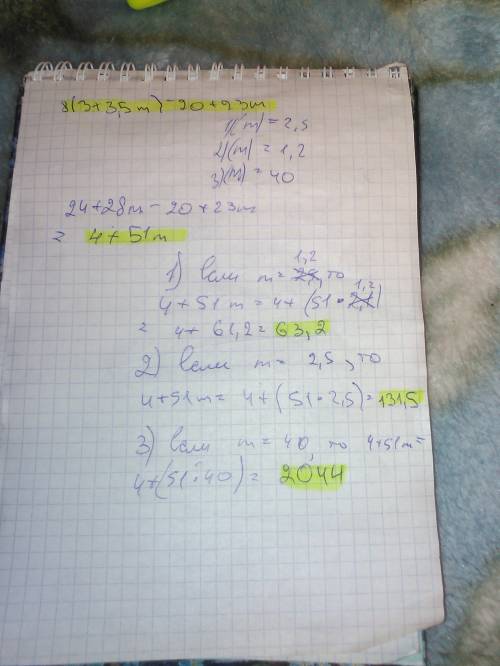 8(3+3,5m)-20+23m
1)(m)=2,5
2)(m)=1,2
3)(m)=40
24+28m-20+23m
= 4+51m
1,2
1) если m= , то
1,2
4+51m=4+(51• )
= 4+61,2=63,2
2) если m= 2,5, то
4+51m= 4+(51•2,5)=131,5
3) если m=40, то 4+51m=
4+(51•40)= 2044